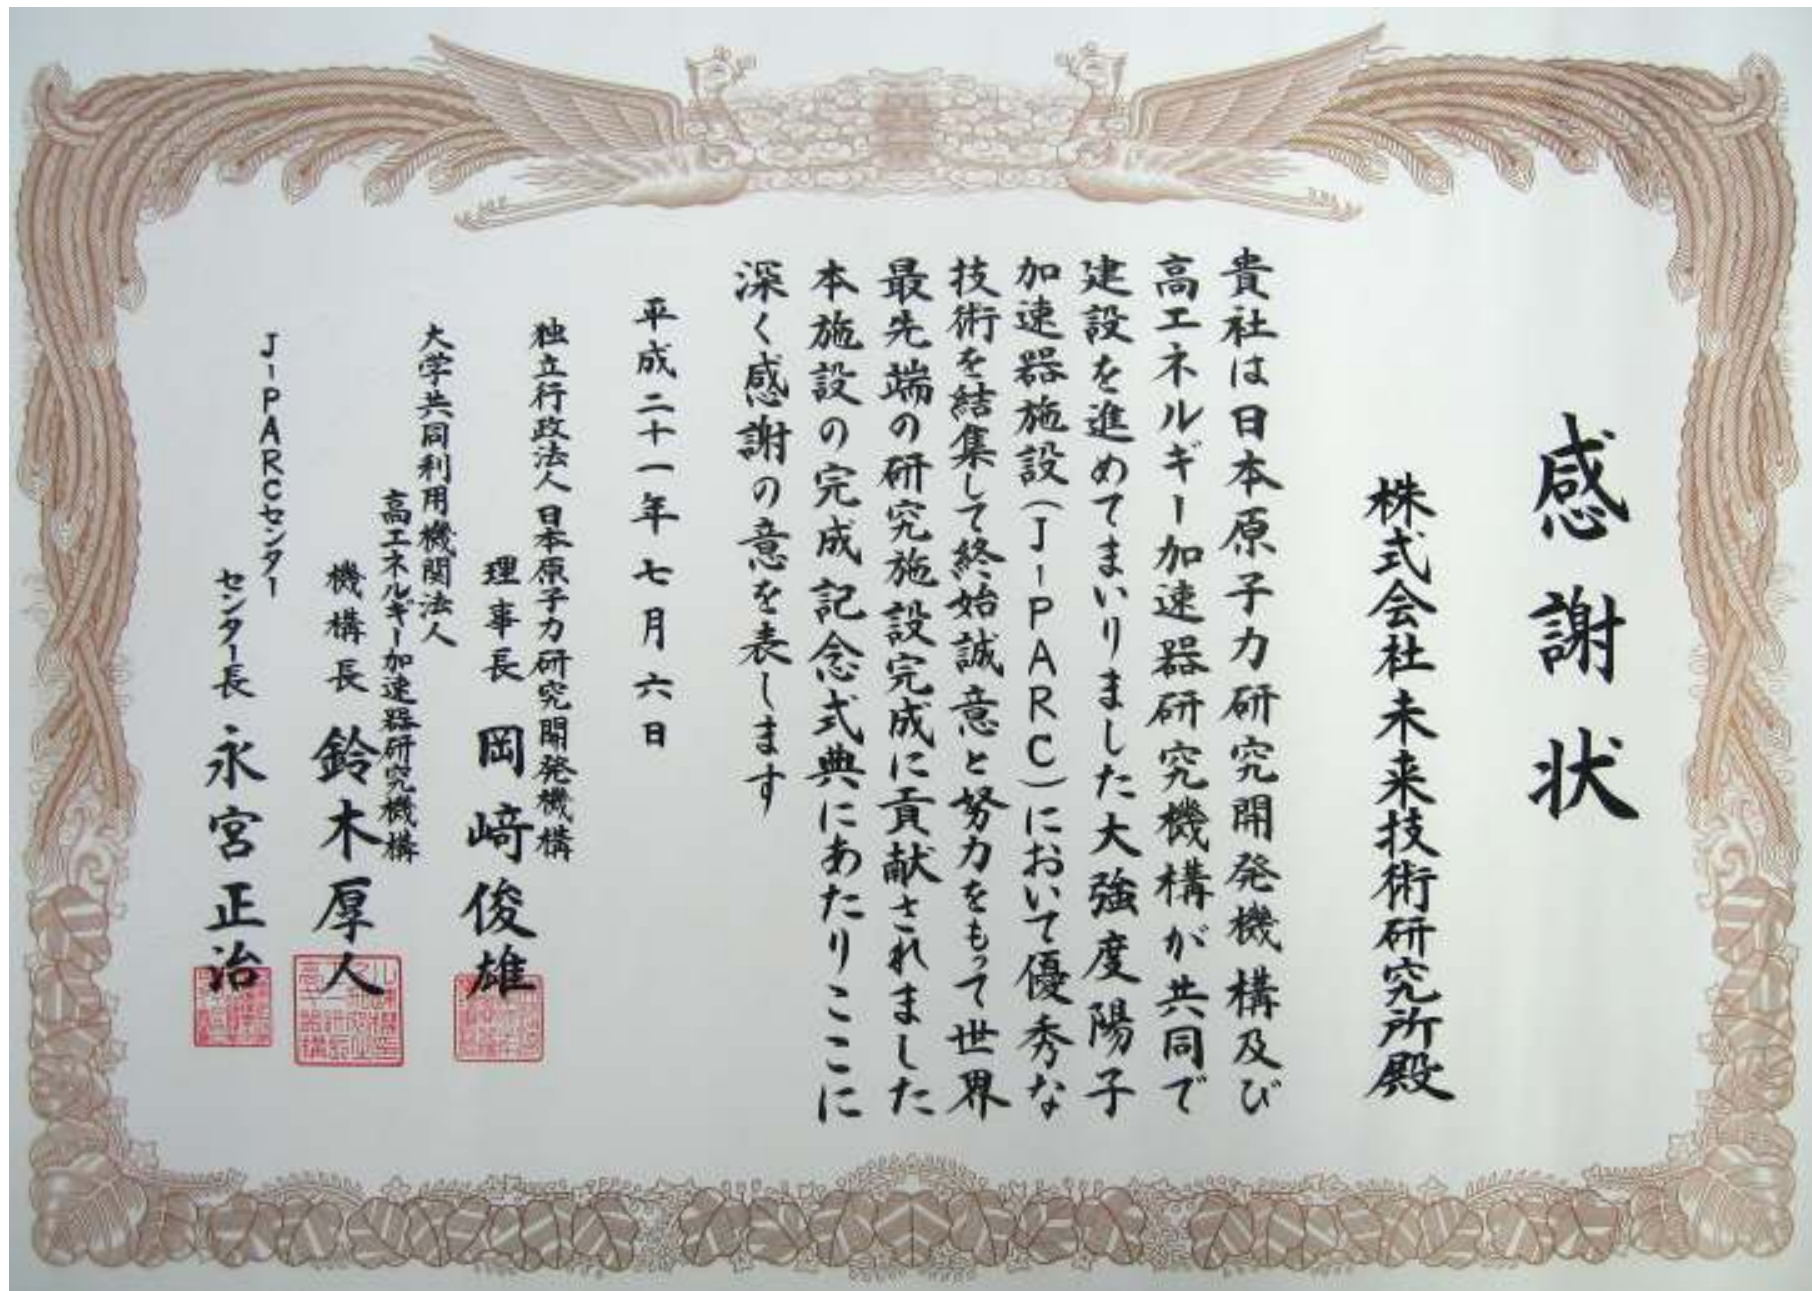 感謝状
株式会社未来技術研究所殿
貴社は日本原子力研究開発機構及び
高エネルギー加速器研究機構が共同で
建設を進めてまいりました大強度陽子
加速器施設(J-PARC)において優秀な
技術を結集して終始誠意と努力をもって世界
最先端の研究施設完成に貢献されました
本施設の完成記念式典にあたりここに
深く感謝の意を表します
平成二十一年七月六日
独立行政法人日本原子力研究開発機構
理事長 岡﨑俊雄
大学共同利用機関法人
高エネルギー加速器研究機構
機構長 鈴木厚人
J-PARCセンター
センター長 永宮正治